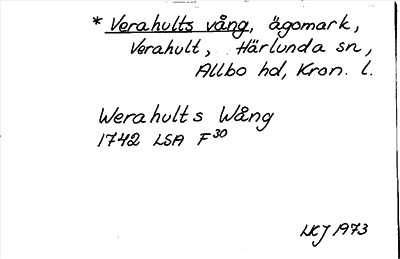 * Verahults vång, ägomark,
Verahult, Härlunda sn,
Allbo hd, Kron. l.
Werahults Wång
1742 LSA F³⁰
LKJ 1973